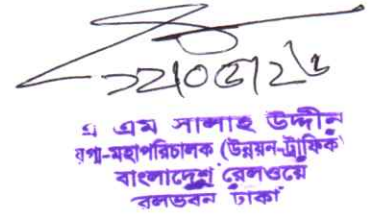 এ এম সালাহ উদ্দীন
যুগ্ম-মহাপরিচালক (উন্নয়ন-ট্রাফিক)
বাংলাদেশ রেলওয়ে
রেলভবন ঢাকা